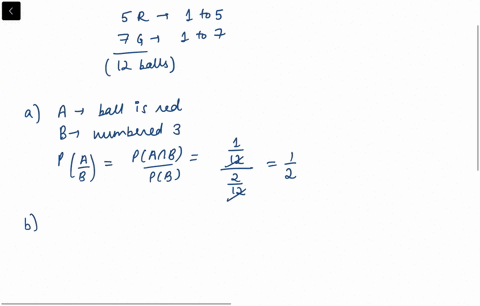 5 R → 1 to 5
7 G → 1 to 7
(12 balls)
a) A → ball is red
B → numbered 3
P(A/B) = P(A∩B)/P(B) = (1/12)/(2/12) = 1/2
b)